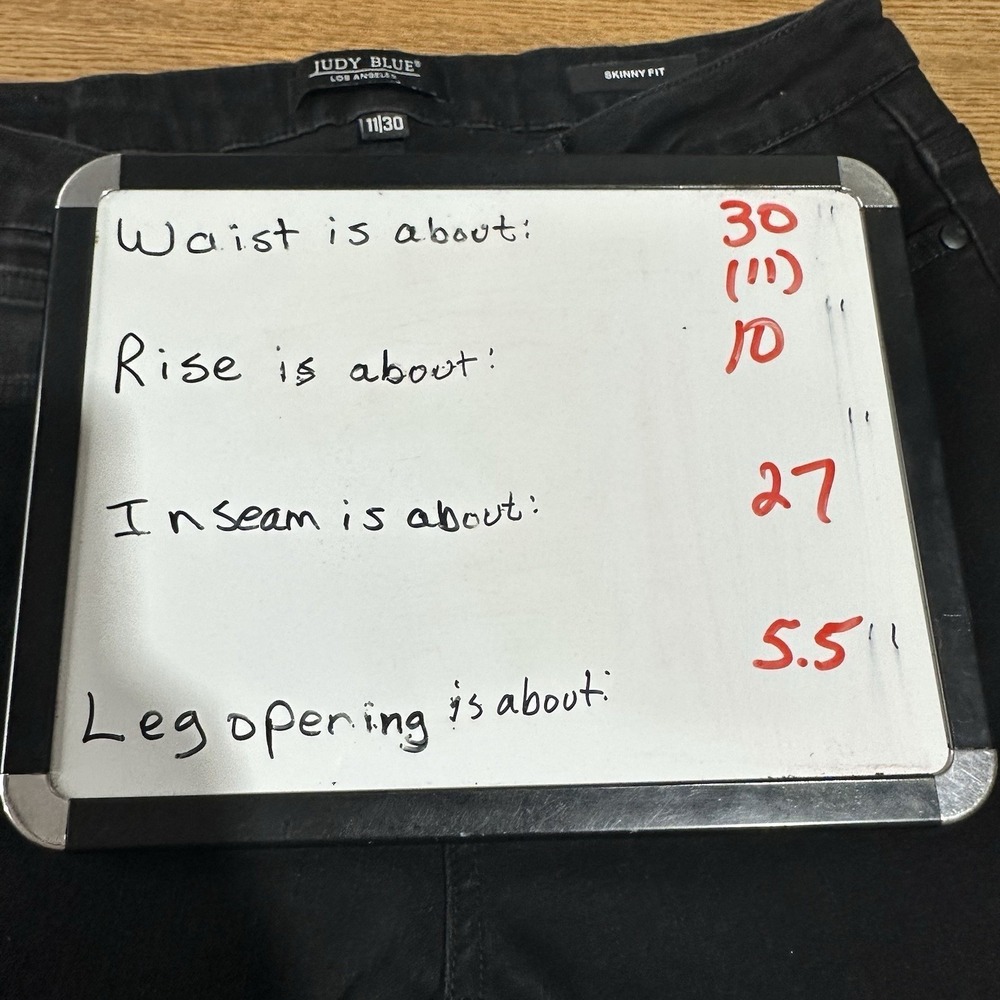 JUDY BLUE®
LOS ANGELES
SKINNY FIT
11|30
Waist is about: 30"
(11)
Rise is about: 10"
Inseam is about: 27"
Leg opening is about: 5.5"